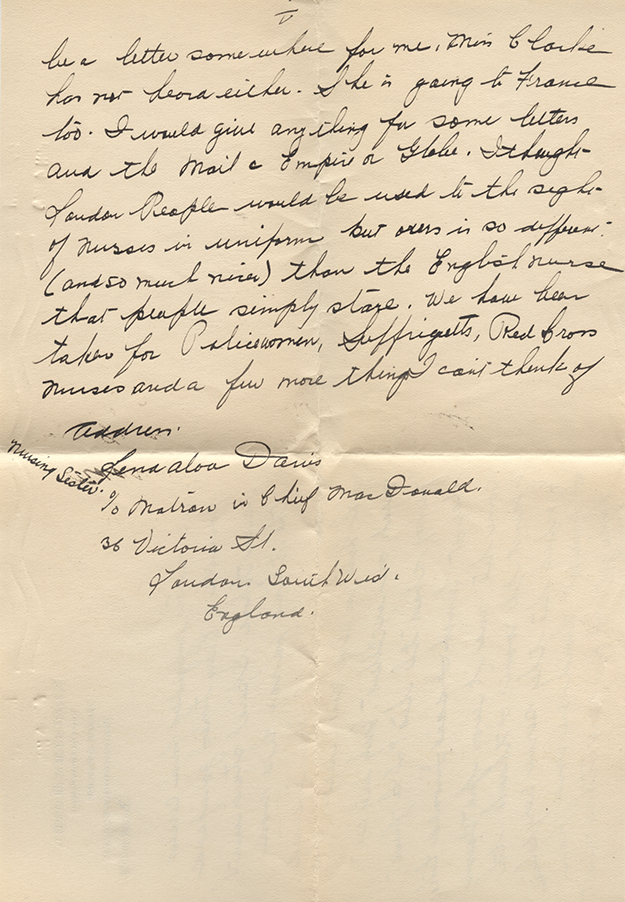 V
be a letter somewhere for me. Miss Clarke
has not heard either. She is going to France
too. I would give anything for some letters
and the Mail & Empire or Globe. I thought
London People would be used to the sight
of nurses in uniform but ours is so different
(and so much nicer) than the English nurse
that people simply stare. We have been
taken for Policewomen, Suffrigetts, Red Cross
nurses and a few more things I can't think of
Address.
Nursing Sister. Lena Aloa Davis
c/o Matron in Chief MacDonald.
36 Victoria St.
London South West.
England.